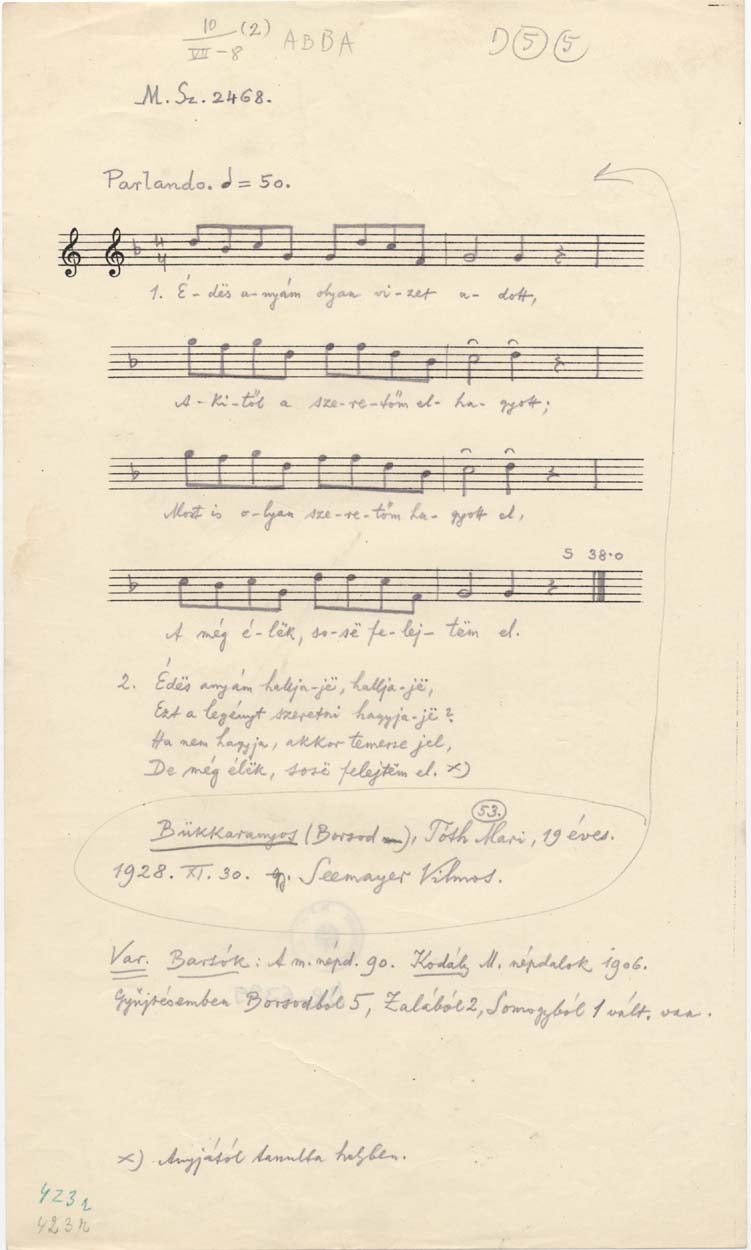 10 (2) ABBA D 5 5
VII-8
M. Sz. 2468.
Parlando. = 50.
1. É-dës a-nyám olyan vi-zet a-dott,
A-ki-től a sze-re-tőm el-ha-gyott;
Most is o-lyan sze-re-tőm ha-gyott el,
S 38·0
A még é-lëk, so-së fe-lej-tëm el.
2. Édës anyám hallja-jë, hallja-jë,
Ezt a legényt szeretni hagyja-jë?
Ha nem hagyja, akkor temesse jel,
De még élëk, sosë felejtëm el. x)
53.
Bükkaranyos (Borsod), Tóth Mari, 19 éves.
1928. XI. 30. gy. Seemayer Vilmos.
Var. Bartók: A m. népd. 90. Kodály M. népdalok 1906.
Gyűjtésemben Borsodból 5, Zalából 2, Somogyból 1 vált. van.
x) Anyjától tanulta helyben.
423r
423r